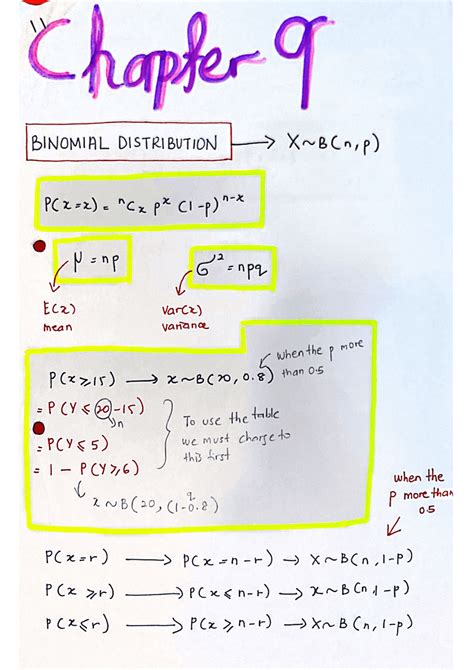 11
Chapter 9
BINOMIAL DISTRIBUTION → X~B(n,p)
P(x=x) = ⁿCₓ pˣ (1-p)ⁿ⁻ˣ
μ = np
σ² = npq
E(x)
mean
Var(x)
variance
when the p more
than 0.5
P(x≥15) → x~B(20, 0.8)
= P(Y ≤ 20-15)
n
= P(Y≤5)
= 1 - P(Y≥6)
To use the table
we must change to
this first
q
x~B(20, (1-0.8)
when the
p more than
0.5
P(x=r) → P(x=n-r) → X~B(n,1-p)
P(x≥r) → P(x≤n-r) → x~B(n,1-p)
P(x≤r) → P(x≥n-r) → X~B(n,1-p)